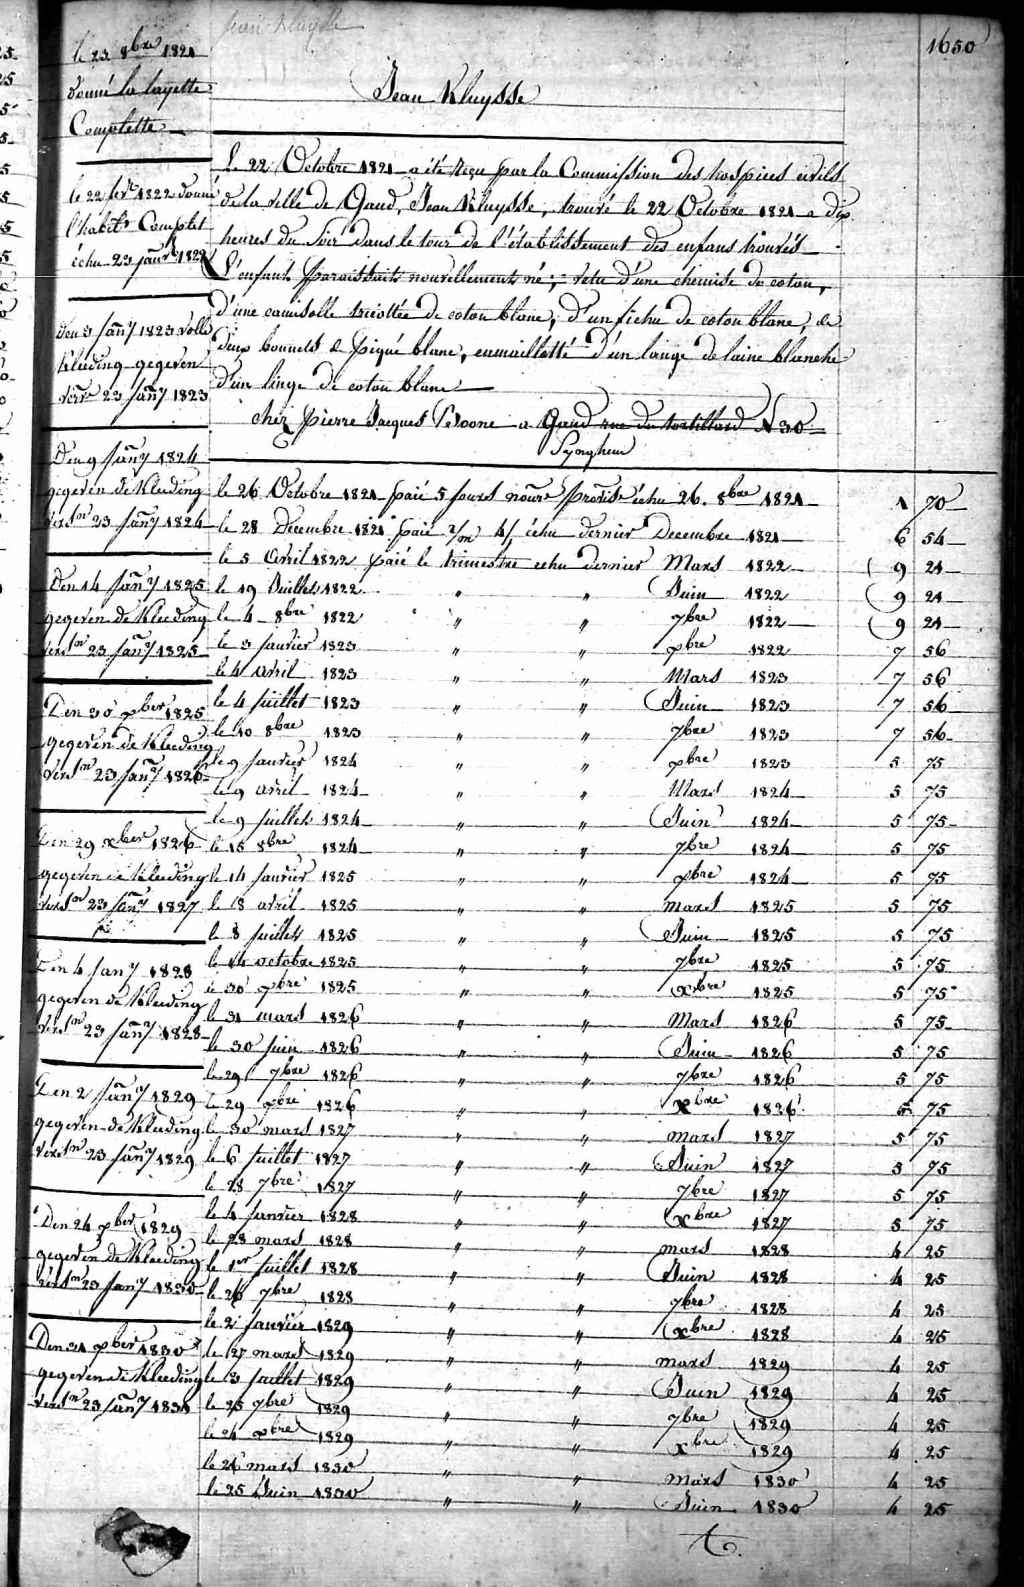 Jean Kluysse
1650
le 23 8bre 1821
donné la layette
Complette
Jean Kluysse
Le 22 Octobre 1821 a été reçu par la Commission des hospices civils
de la ville de Gand, Jean Kluysse, trouvé le 22 Octobre 1821 a dix
heures du soir dans le tour de l'établissement des enfans trouvés
L'enfant paraissait nouvellement né; vetu d'une chemise de coton,
d'une camisolle tricottée de coton blanc, d'un fichu de coton blanc, de
deux bonnets de piqué blanc, emmaillotté d'un lange de laine blanche
d'un linge de coton blanc
chez Pierre Jacques a Gand rue du tortillard N 30
Synghem
le 22 1822 donné
l'habit Complet
échu 23 janvr 1822
Den 3 Jany 1823 volle
kleeding gegeven
23 Jany 1823
Den 9 Jany 1824
gegeven de Kleeding
23 Jany 1824
Den 14 Jany 1825
gegeven de Kleeding
23 Jany 1825
Den 30 xber 1825
gegeven de Kleeding
23 Jany 1826
Den 29 xber 1826
gegeven de Kleeding
23 Jany 1827
Den 4 Jany 1828
gegeven de Kleeding
23 Jany 1828
Den 2 Jany 1829
gegeven de Kleeding
23 Jany 1829
Den 24 xber 1829
gegeven de Kleeding
23 Jany 1830
Den 31 xber 1830
gegeven de Kleeding
23 Jany 1831
le 26 Octobre 1821 paié 5 jours échu 26. 8bre 1821 1 70
le 28 Decembre 1821 paié échu dernier Decembre 1821 6 54
le 5 Avril 1822 paié le trimestre echu dernier Mars 1822 9 21
le 19 Juillet 1822 " " Juin 1822 9 21
le 4 8bre 1822 " " 7bre 1822 9 21
le 3 janvier 1823 " " xbre 1822 7 56
le 4 avril 1823 " " Mars 1823 7 56
le 4 juillet 1823 " " Juin 1823 7 56
le 10 8bre 1823 " " 7bre 1823 7 56
le 9 janvier 1824 " " xbre 1823 5 75
le 9 avril 1824 " " Mars 1824 5 75
le 9 juillet 1824 " " Juin 1824 5 75
le 15 8bre 1824 " " 7bre 1824 5 75
le 14 janvier 1825 " " xbre 1824 5 75
le 8 avril 1825 " " mars 1825 5 75
le 8 juillet 1825 " " Juin 1825 5 75
le 14 octobre 1825 " " 7bre 1825 5 75
le 30 xbre 1825 " " xbre 1825 5 75
le 31 mars 1826 " " Mars 1826 5 75
le 30 juin 1826 " " Juin 1826 5 75
le 29 7bre 1826 " " 7bre 1826 5 75
le 29 xbre 1826 " " xbre 1826 5 75
le 30 mars 1827 " " mars 1827 5 75
le 6 juillet 1827 " " Juin 1827 5 75
le 28 7bre 1827 " " 7bre 1827 5 75
le 4 janvier 1828 " " xbre 1827 5 75
le 28 mars 1828 " " mars 1828 4 25
le 1er juillet 1828 " " Juin 1828 4 25
le 26 7bre 1828 " " 7bre 1828 4 25
le 2 janvier 1829 " " xbre 1828 4 25
le 27 mars 1829 " " mars 1829 4 25
le 3 juillet 1829 " " Juin 1829 4 25
le 25 7bre 1829 " " 7bre 1829 4 25
le 24 xbre 1829 " " xbre 1829 4 25
le 26 mars 1830 " " Mars 1830 4 25
le 25 Juin 1830 " " Juin 1830 4 25